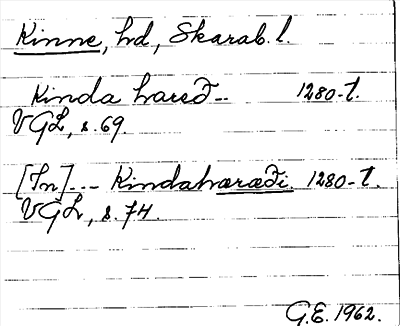 Kinne, hd, Skarab. l.
Kinda hæreð-- 1280-t.
VGL, s. 69.
[In]--- Kindahæræði 1280-t.
VGL, s. 74.
G.E. 1962.